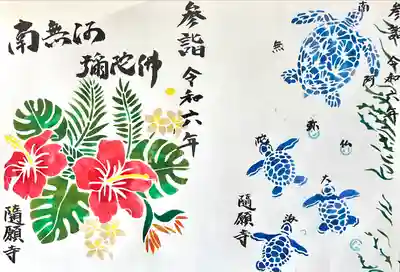 参詣 令和六年
南無阿
彌陀佛
隨願寺
参詣 令和六年
南
無
阿
弥
陀
仏
大
海
隨願寺